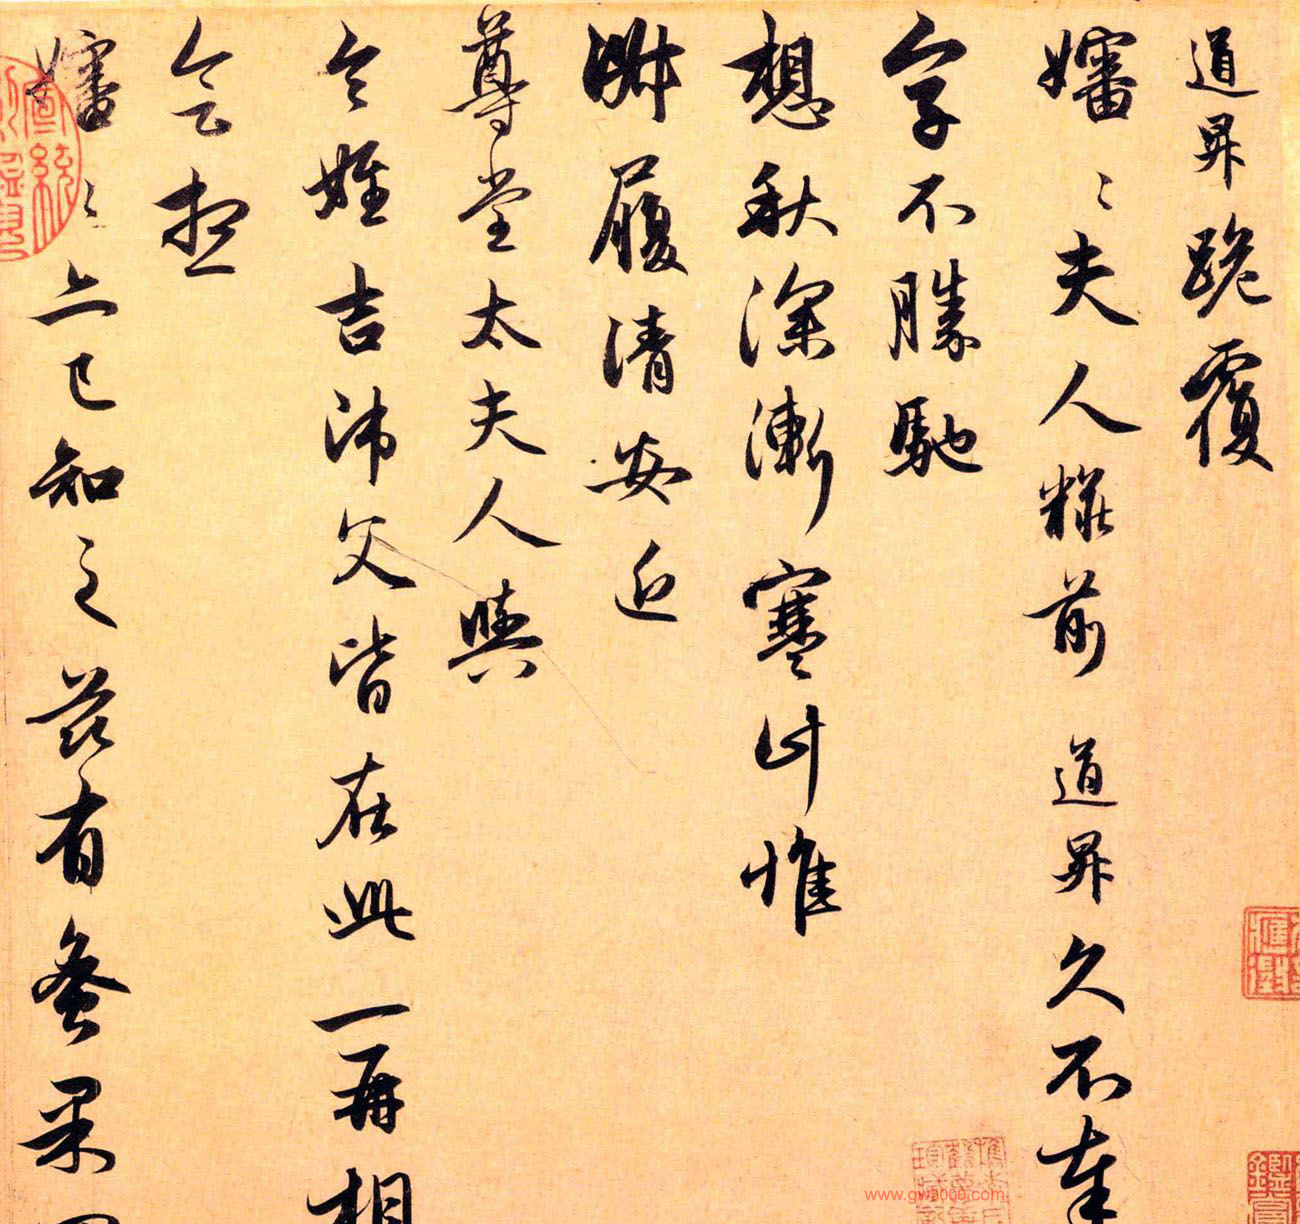 道昇跪覆
嬸〻夫人粧前道昇久不奉
字不勝馳
想秋深漸寒計惟
淑履清安近
尊堂太夫人與
令姪吉師父皆在此一再相
會想
嬸〻亦已知之茲有蚤果
www.gw8000.com